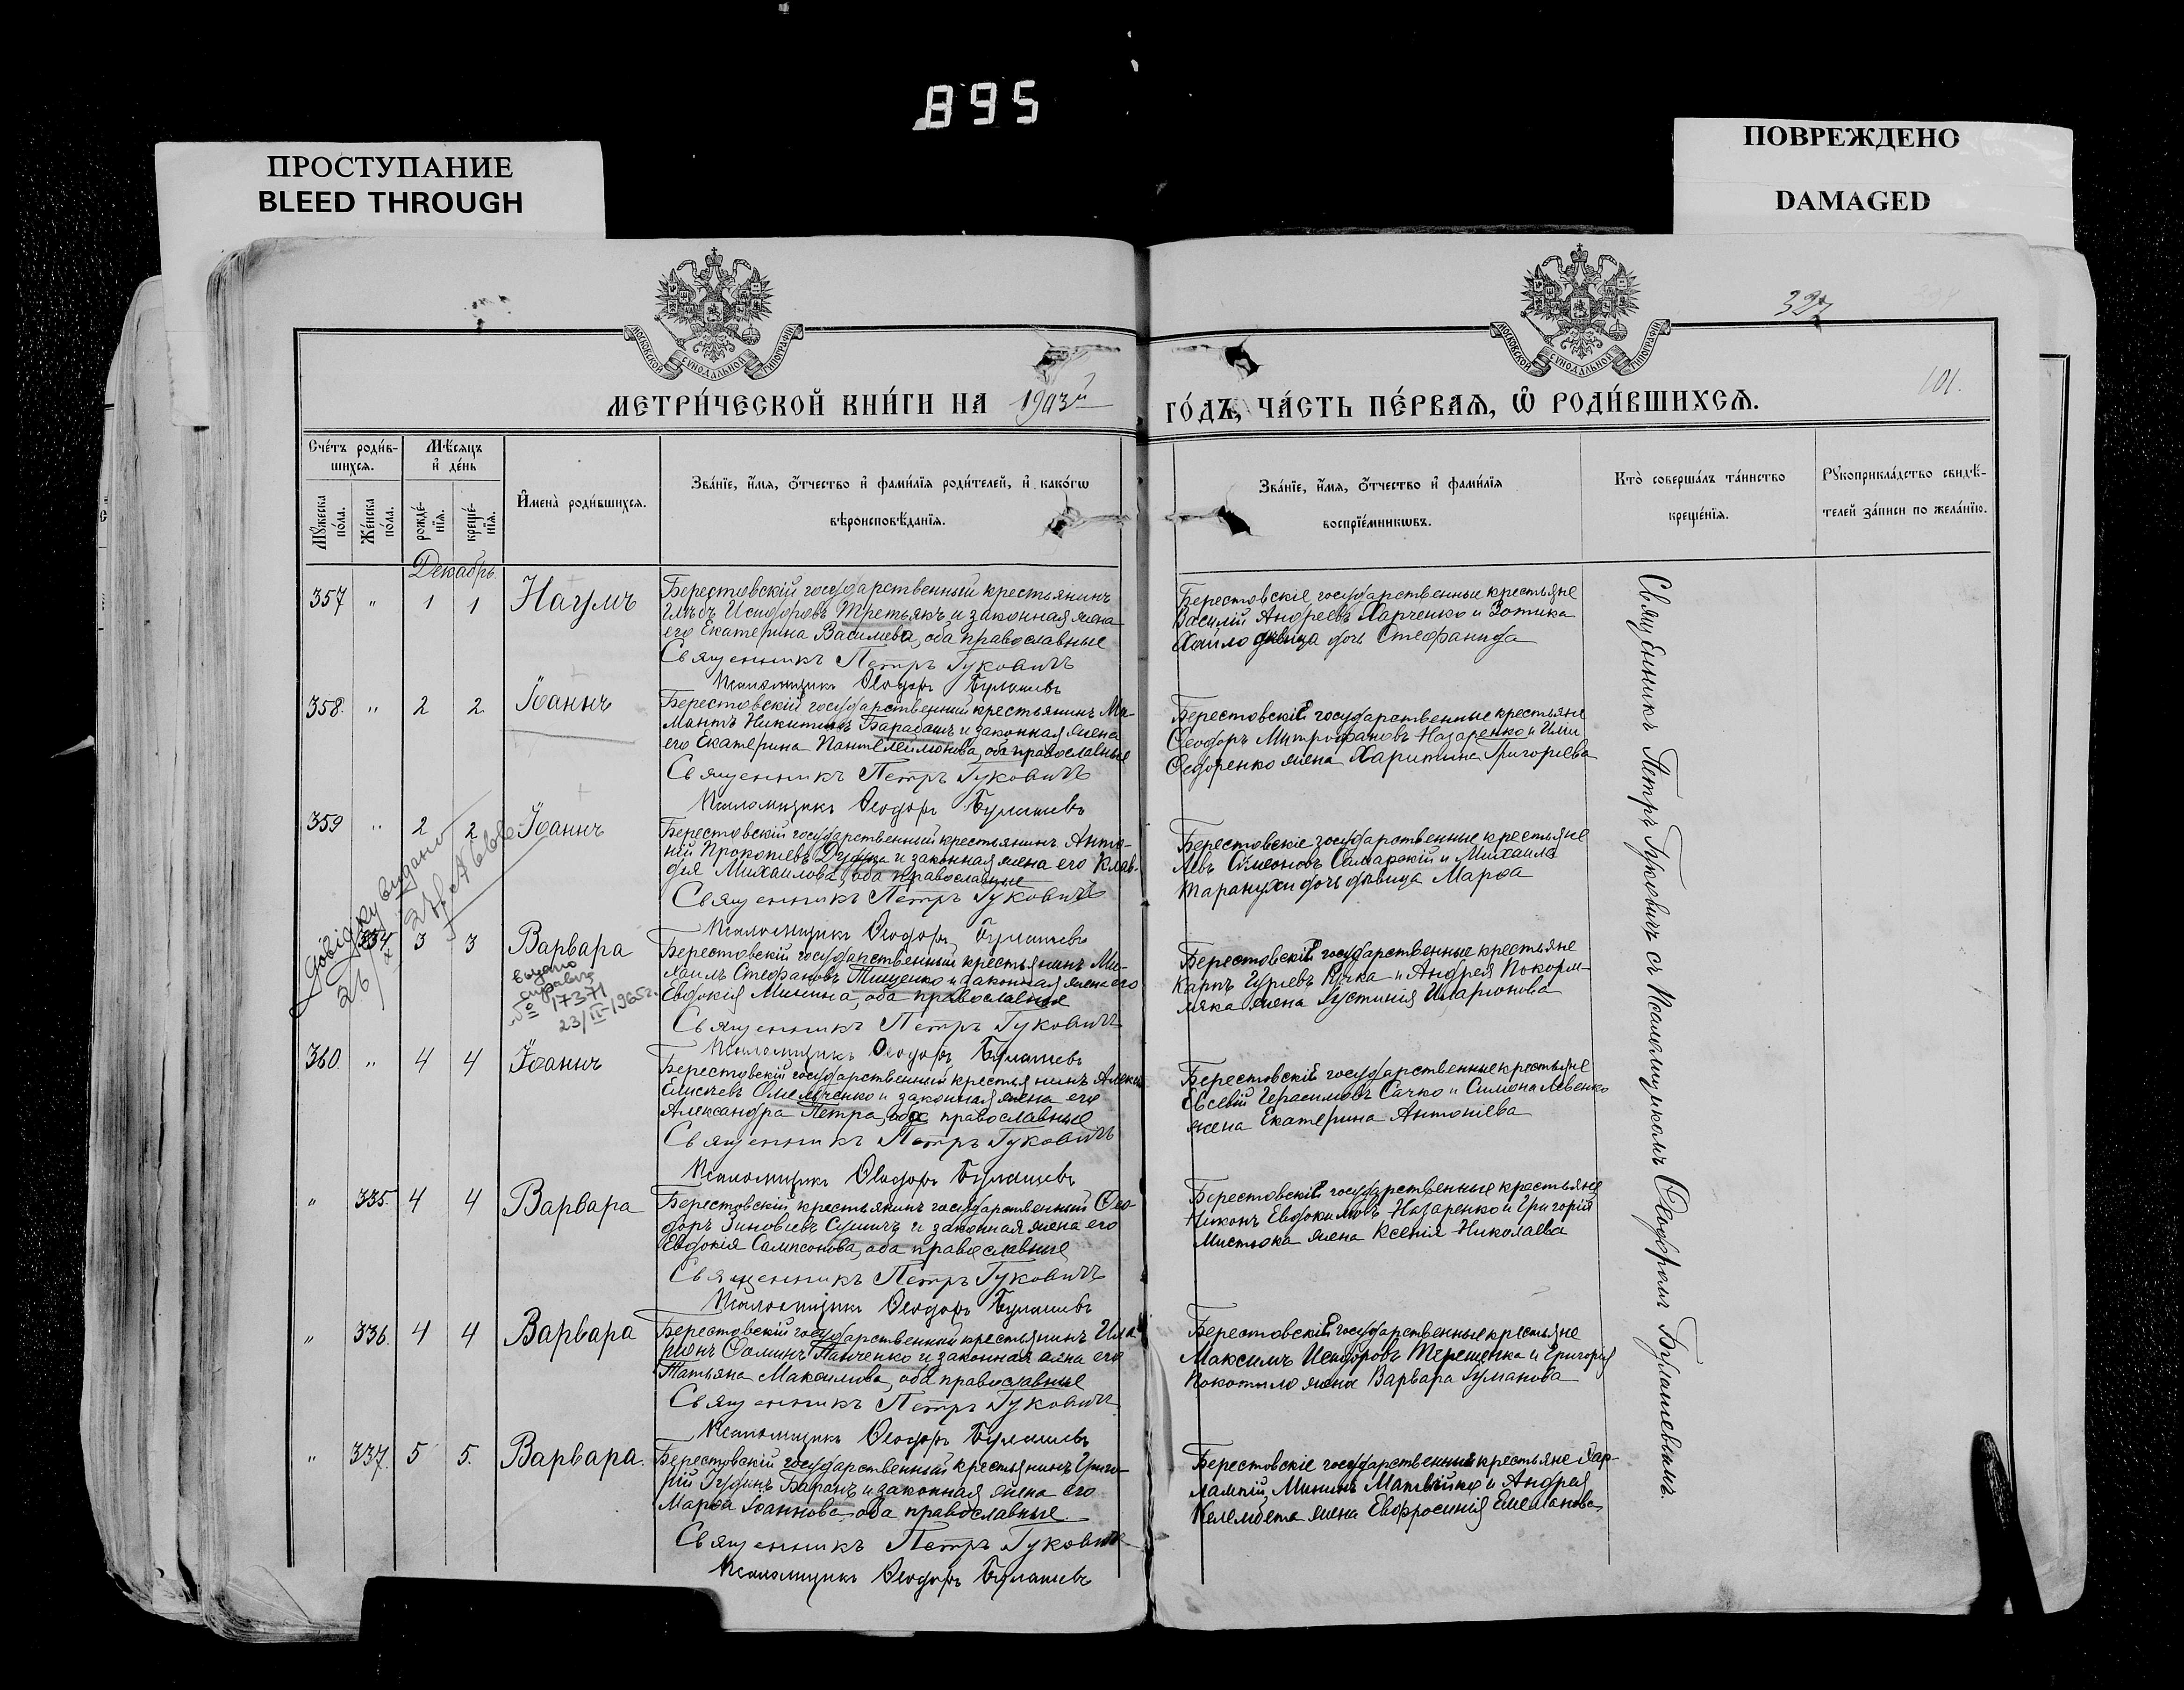 895
ПРОСТУПАНИЕ
BLEED THROUGH
ПОВРЕЖДЕНО
DAMAGED
МОСКОВСКОЙ СѴНОДАЛЬНОЙ ТИПОГРАФІИ
МОСКОВСКОЙ СѴНОДАЛЬНОЙ ТИПОГРАФІИ
327
101.
МЕТРИ́ЧЕСКОЙ КНИ́ГИ НА 1903й
ГО́ДЪ, ЧА́СТЬ ПЕ́РВАЯ, Ѡ РОДИ́ВШИХСЯ.
Сче́тъ роди́в-
шихся.
Мѣ́сяцъ
и де́нь
Мꙋ́жеска
по́ла.
Же́нска
по́ла.
рожде́-
нїя.
креще́-
нїя.
И҆мена̀ роди́вшихся.
Зва́нїе, и҆́мя, ѻ҆́тчество и҆ фами́лїя роди́телей, и҆ како́гѡ
вѣроисповѣ́данїя.
Зва́нїе, и҆́мя, ѻ҆́тчество и҆ фами́лїя
воспрїе́мникѡвъ.
Кто̀ соверша́лъ та́инство
креще́нїя.
Рꙋкоприкла́дство свидѣ́-
телей за́писи по жела́нїю.
Декабрь
357 " 1 1 Наумъ
Берестовскій государственный крестьянинъ
Глѣбъ Исидоровъ Третьякъ и законная жена
его Екатерина Васильева, оба православные
Священникъ Петръ Гуковичъ
Псаломщикъ Ѳеодоръ Булашевъ
Берестовскіе государственные крестьяне
Василій Андреевъ Харченко и Зотика
Хайло дѣвица дочь Стефанида
358. " 2 2. Іоаннъ
Берестовскій государственный крестьянинъ Ма-
мантъ Никитинъ Барабашъ и законная жена
его Екатерина Пантелеймонова, оба православные
Священникъ Петръ Гуковичъ
Псаломщикъ Ѳеодоръ Булашевъ
Берестовскіе государственные крестьяне
Ѳеодоръ Митрофановъ Назаренко и
Ѳедоренко жена Харитина Григорьева
359 " 2 2 Іоаннъ
Берестовскій государственный крестьянинъ Анто-
ній Прокопіевъ и законная жена его Клав-
дія Михаилова, оба православные
Священникъ Петръ Гуковичъ
Псаломщикъ Ѳеодоръ Булашевъ
Берестовскіе государственные крестьяне
Левъ Симеоновъ Самарскій и Михаила
Таранухи дочь дѣвица Марѳа
Довідку видано
334. 3 3 Варвара
видано
№ 17371
23/II-1965г.
Берестовскій государственный крестьянинъ Ми-
хаилъ Стефановъ Тищенко и законная жена его
Евдокія Минина, оба православные
Священникъ Петръ Гуковичъ
Псаломщикъ Ѳеодоръ Булашевъ
Берестовскіе государственные крестьяне
Карпъ Гуріевъ Ручка и Андрея Покорм-
мяка жена Іустинія Иларіонова
360. " 4 4 Іоаннъ
Берестовскій государственный крестьянинъ
Елисеевъ Омельченко и законная жена его
Александра Петра, оба православные
Священникъ Петръ Гуковичъ
Псаломщикъ Ѳеодоръ Булашевъ
Берестовскіе государственные крестьяне
Евсевій Герасимовъ Сачко и Симона Левенко
жена Екатерина Антоніева
" 335. 4 4 Варвара
Берестовскій крестьянинъ государственный Ѳео-
доръ Зиновіевъ и законная жена его
Евдокія Сампсонова, оба православные
Священникъ Петръ Гуковичъ
Псаломщикъ Ѳеодоръ Булашевъ
Берестовскіе государственные крестьяне
Никонъ Евдокимовъ Назаренко и Григорія
жена Ксенія Николаева
" 336. 4 4 Варвара
Берестовскій государственный крестьянинъ Ила-
ріонъ Ѳоминъ Панченко и законная жена его
Татьяна Максимова, оба православные
Священникъ Петръ Гуковичъ
Псаломщикъ Ѳеодоръ Булашевъ
Берестовскіе государственные крестьяне
Максимъ Исидоровъ Терещенко и Григорія
Покотило жена Варвара
" 337. 5 5. Варвара.
Берестовскій государственный крестьянинъ Григо-
рій Іудинъ Баранъ и законная жена его
Марѳа Іоаннова оба православные.
Священникъ Петръ Гуковичъ
Псаломщикъ Ѳеодоръ Булашевъ
Берестовскіе государственные крестьяне Хар-
лампій Мининъ Матвѣйко и Андрея
жена Евфросинія Емельянова
Священникъ Петръ Гуковичъ съ Псаломщикомъ Ѳеодоромъ Булашевымъ.